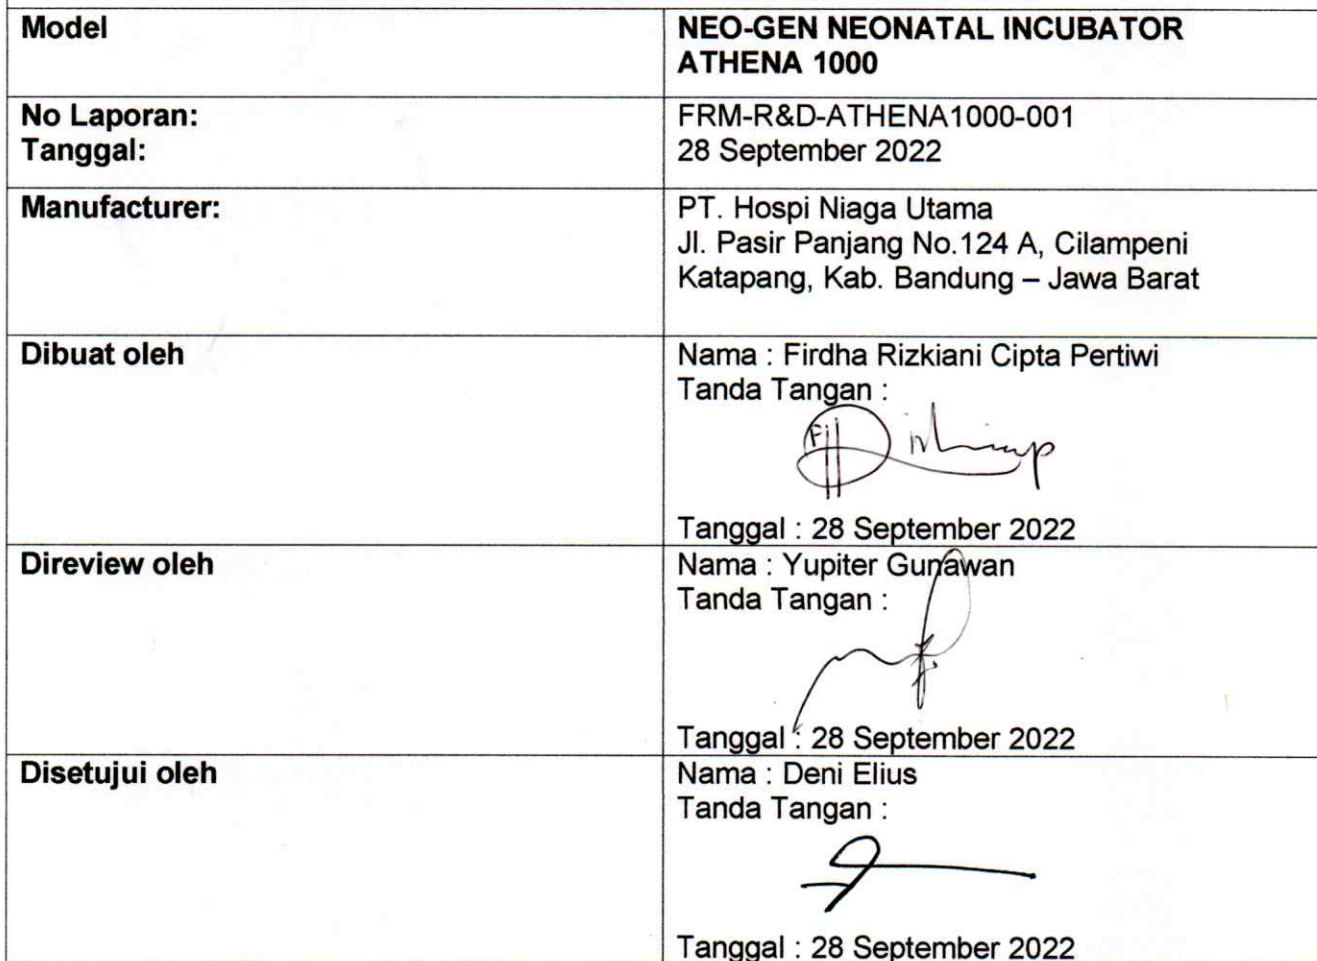 Model
NEO-GEN NEONATAL INCUBATOR
ATHENA 1000
No Laporan:
FRM-R&D-ATHENA1000-001
Tanggal:
28 September 2022
Manufacturer:
PT. Hospi Niaga Utama
Jl. Pasir Panjang No.124 A, Cilampeni
Katapang, Kab. Bandung – Jawa Barat
Dibuat oleh
Nama : Firdha Rizkiani Cipta Pertiwi
Tanda Tangan :
Tanggal : 28 September 2022
Direview oleh
Nama : Yupiter Gunawan
Tanda Tangan :
Tanggal : 28 September 2022
Disetujui oleh
Nama : Deni Elius
Tanda Tangan :
Tanggal : 28 September 2022